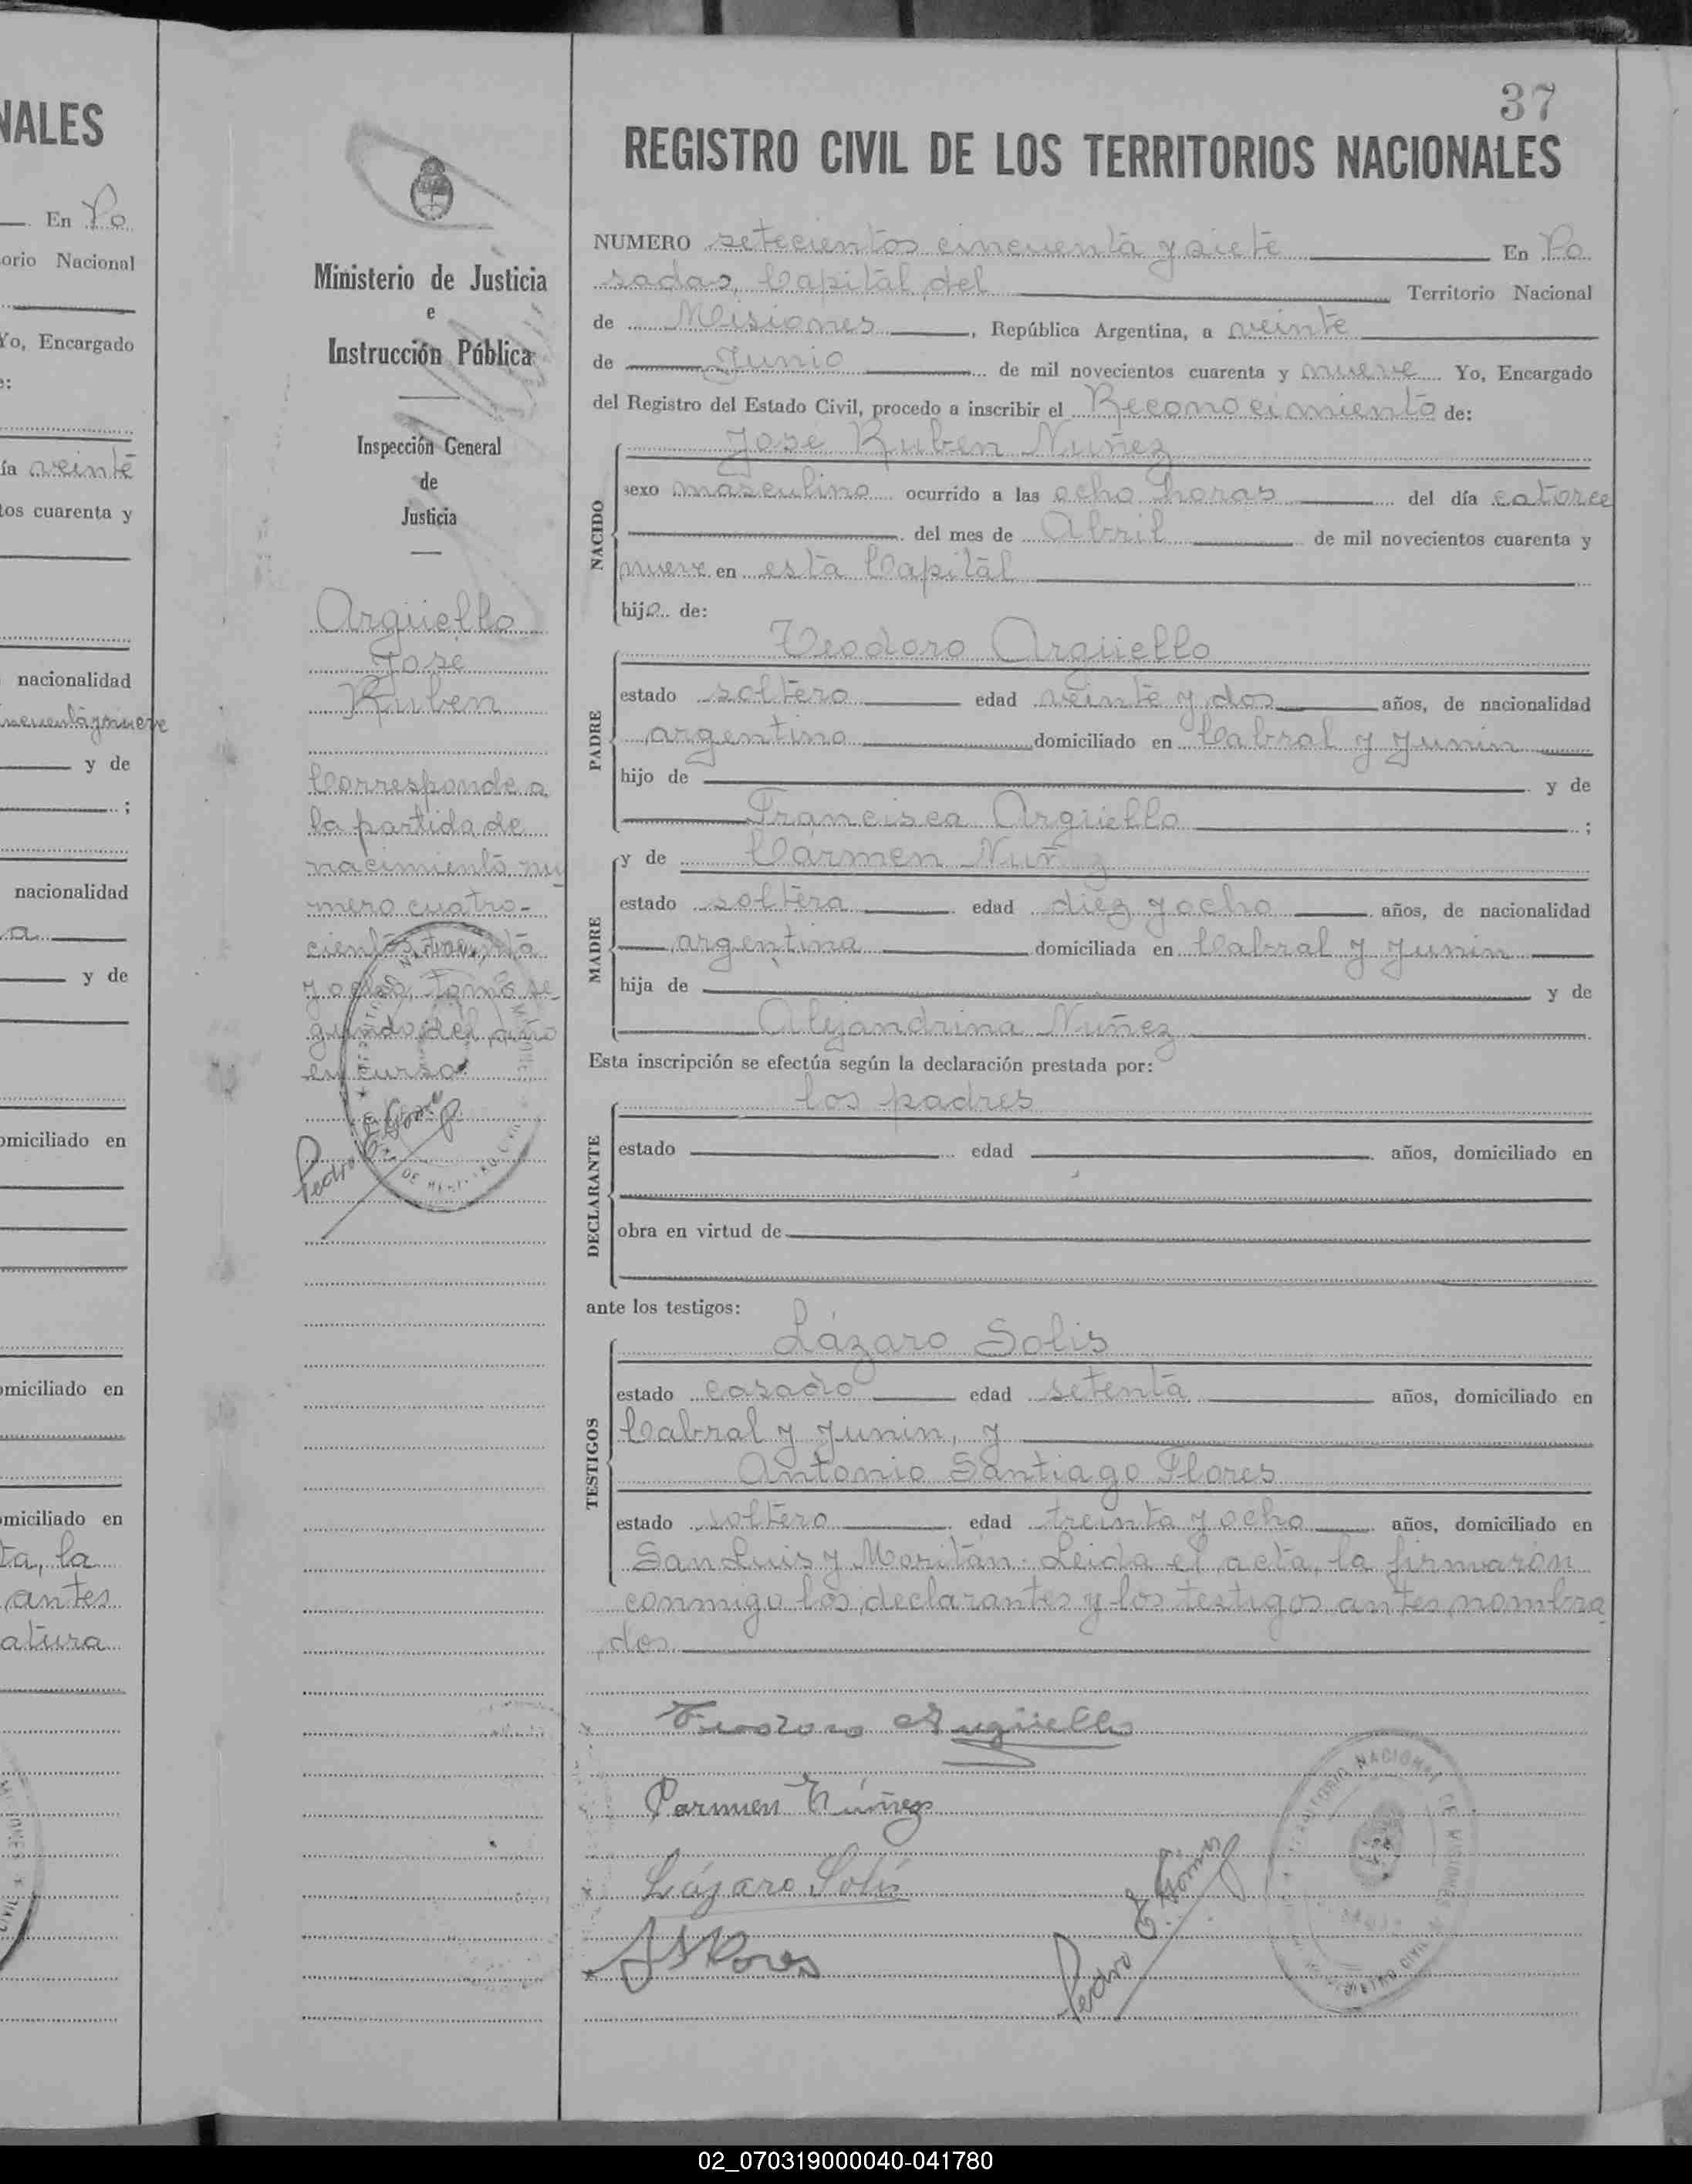 NALES
En Po
orio Nacional
Yo, Encargado
ía veinte
tos cuarenta y
nacionalidad
y de
;
nacionalidad
a
y de
omiciliado en
omiciliado en
omiciliado en
ta, la
antes
atura
Ministerio de Justicia
e
Instrucción Pública
Inspección General
de
Justicia
Argüello
José
Ruben
Corresponde a
la partida de
nacimiento nu
mero cuatro-
cientos treinta
y ocho, Tomo se
gundo del año
en curso
Pedro E Gómez
37
REGISTRO CIVIL DE LOS TERRITORIOS NACIONALES
NUMERO setecientos cincuenta y siete En Po
sadas, Capital del Territorio Nacional
de Misiones, República Argentina, a veinte
de Junio de mil novecientos cuarenta y nueve Yo, Encargado
del Registro del Estado Civil, procedo a inscribir el Reconocimiento de:
NACIDO
José Ruben Nuñez
sexo masculino ocurrido a las ocho horas del día catorce
del mes de Abril de mil novecientos cuarenta y
nueve en esta Capital
hijo de:
PADRE
Teodoro Argüello
estado soltero edad veinte y dos años, de nacionalidad
argentino domiciliado en Cabral y Junin
hijo de y de
Francisca Argüello ;
MADRE
y de Cármen Nuñez
estado soltera edad diez y ocho años, de nacionalidad
argentina domiciliada en Cabral y Junin
hija de y de
Alejandrina Nuñez
Esta inscripción se efectúa según la declaración prestada por:
DECLARANTE
los padres
estado edad años, domiciliado en
obra en virtud de
ante los testigos:
TESTIGOS
Lázaro Solis
estado casado edad setenta años, domiciliado en
Cabral y Junin, y
Antonio Santiago Flores
estado soltero edad treinta y ocho años, domiciliado en
San Luis y Moritán. Leida el acta, la firmarón
conmigo los declarantes y los testigos antes nombra
dos.
Teodoro Argüello
Carmen Núñez
Lázaro Solís
ASFlores
Pedro E Gómez
02_070319000040-041780